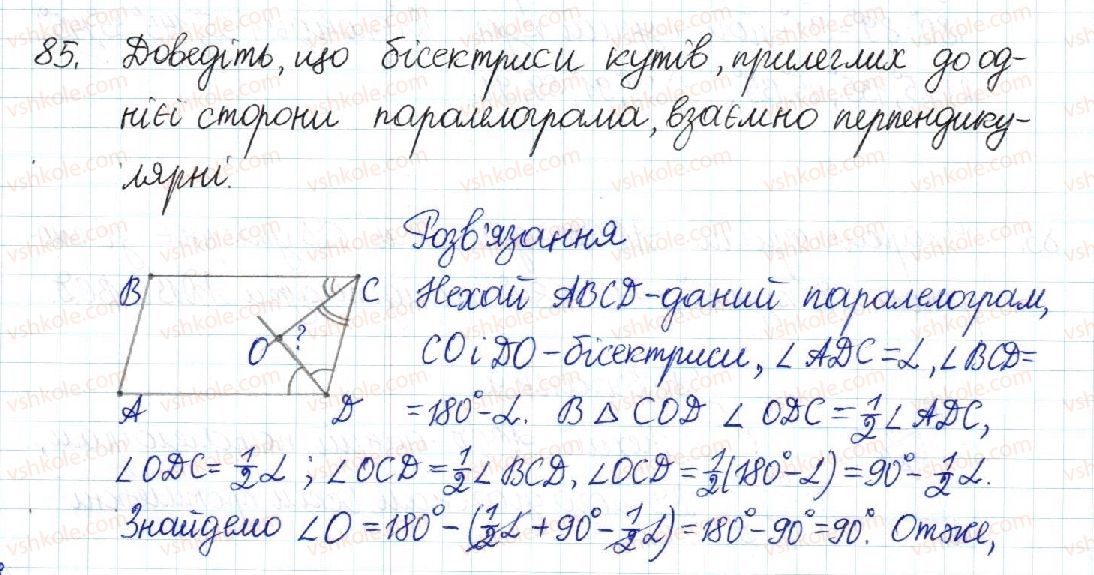 85. Доведіть, що бісектриси кутів, прилеглих до од-
нієї сторони паралелограма, взаємно перпендику-
лярні.
Розв'язання
B C Нехай ABCD - даний паралелограм,
O ? CO і DO - бісектриси, ∠ADC = α, ∠BCD =
A D = 180° - α. В △ COD ∠ ODC = 1/2 ∠ ADC,
∠ODC = 1/2 α; ∠OCD = 1/2 ∠BCD, ∠OCD = 1/2(180° - α) = 90° - 1/2 α.
Знайдемо ∠O = 180° - (1/2 α + 90° - 1/2 α) = 180° - 90° = 90°. Отже,